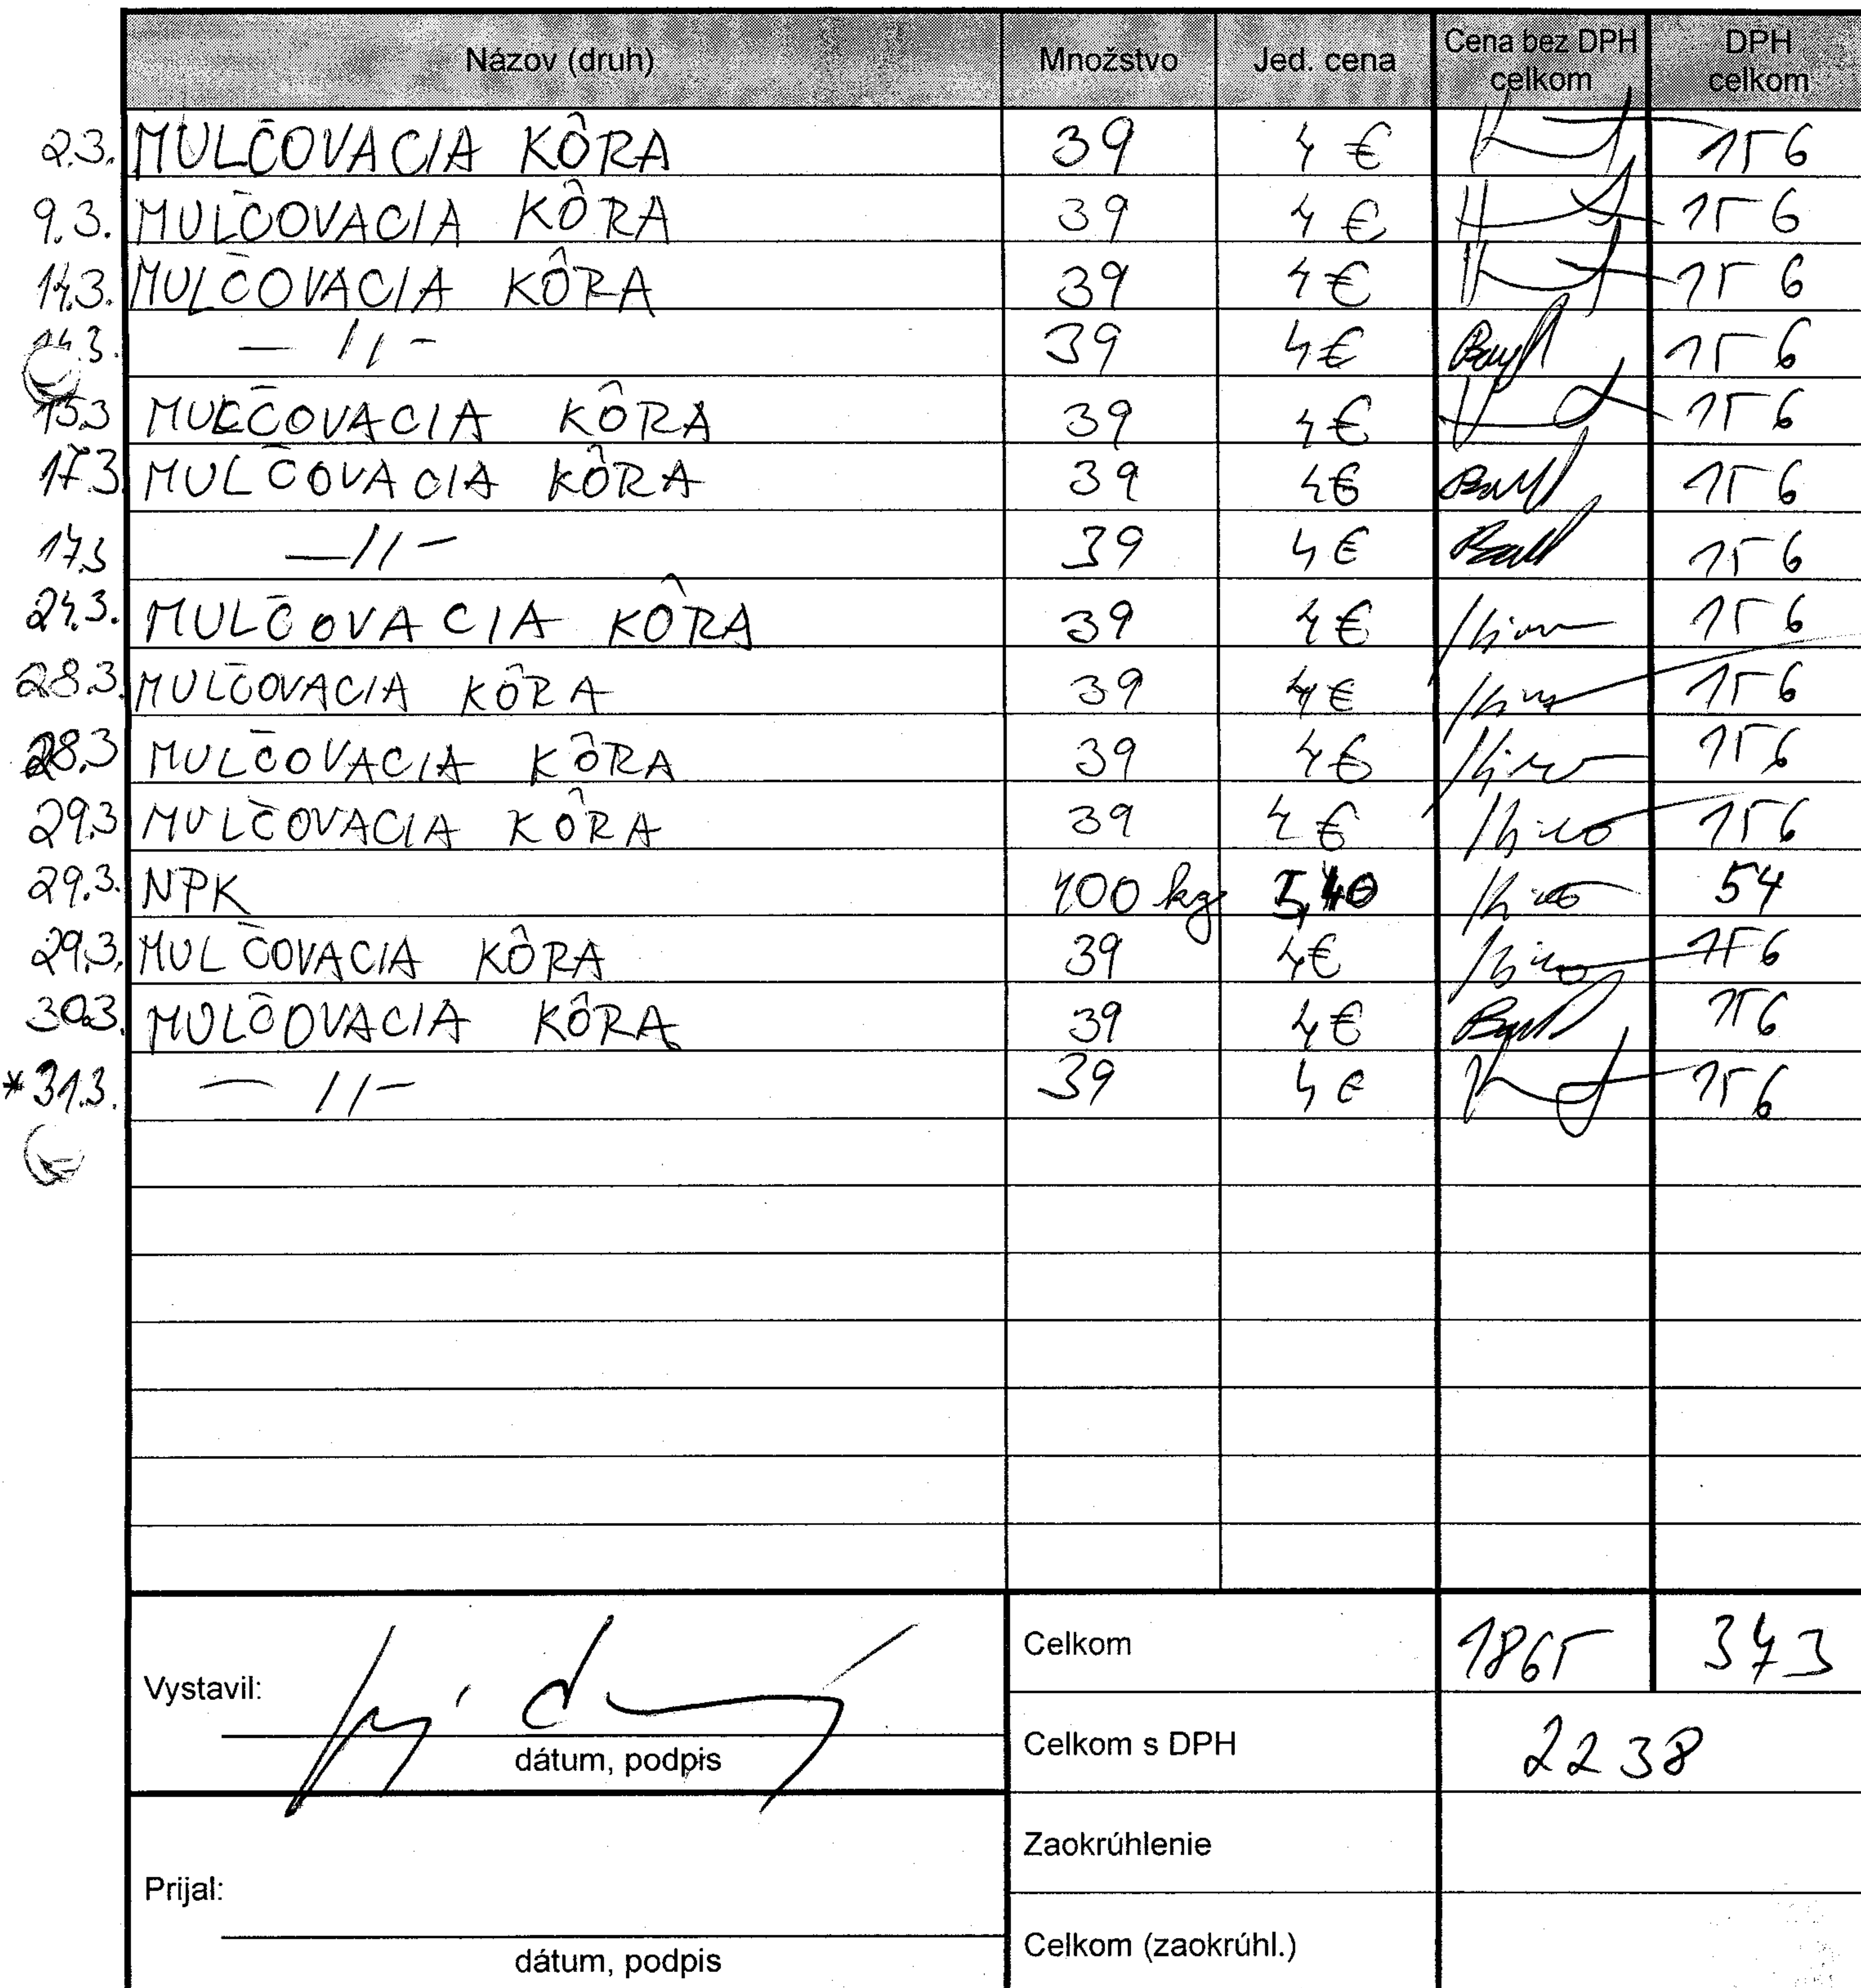 Názov (druh) Množstvo Jed. cena Cena bez DPH celkom DPH celkom
2.3. MULČOVACIA KÔRA 39 4 € 156
9.3. MULČOVACIA KÔRA 39 4 € 156
14.3. MULČOVACIA KÔRA 39 4 € 156
14.3. — // - 39 4 € 156
15.3 MULČOVACIA KÔRA 39 4 € 156
17.3 MULČOVACIA KÔRA 39 4 € 156
17.3 — // - 39 4 € 156
24.3. MULČOVACIA KÔRA 39 4 € 156
28.3. MULČOVACIA KÔRA 39 4 € 156
28.3 MULČOVACIA KÔRA 39 4 € 156
29.3 MULČOVACIA KÔRA 39 4 € 156
29.3. NPK 100 kg 5,40 54
29.3. MULČOVACIA KÔRA 39 4 € 156
30.3. MULČOVACIA KÔRA 39 4 € 156
* 31.3. — // - 39 4 € 156
Celkom 1865 373
Vystavil:
Celkom s DPH 2238
dátum, podpis
Zaokrúhlenie
Prijal:
Celkom (zaokrúhl.)
dátum, podpis